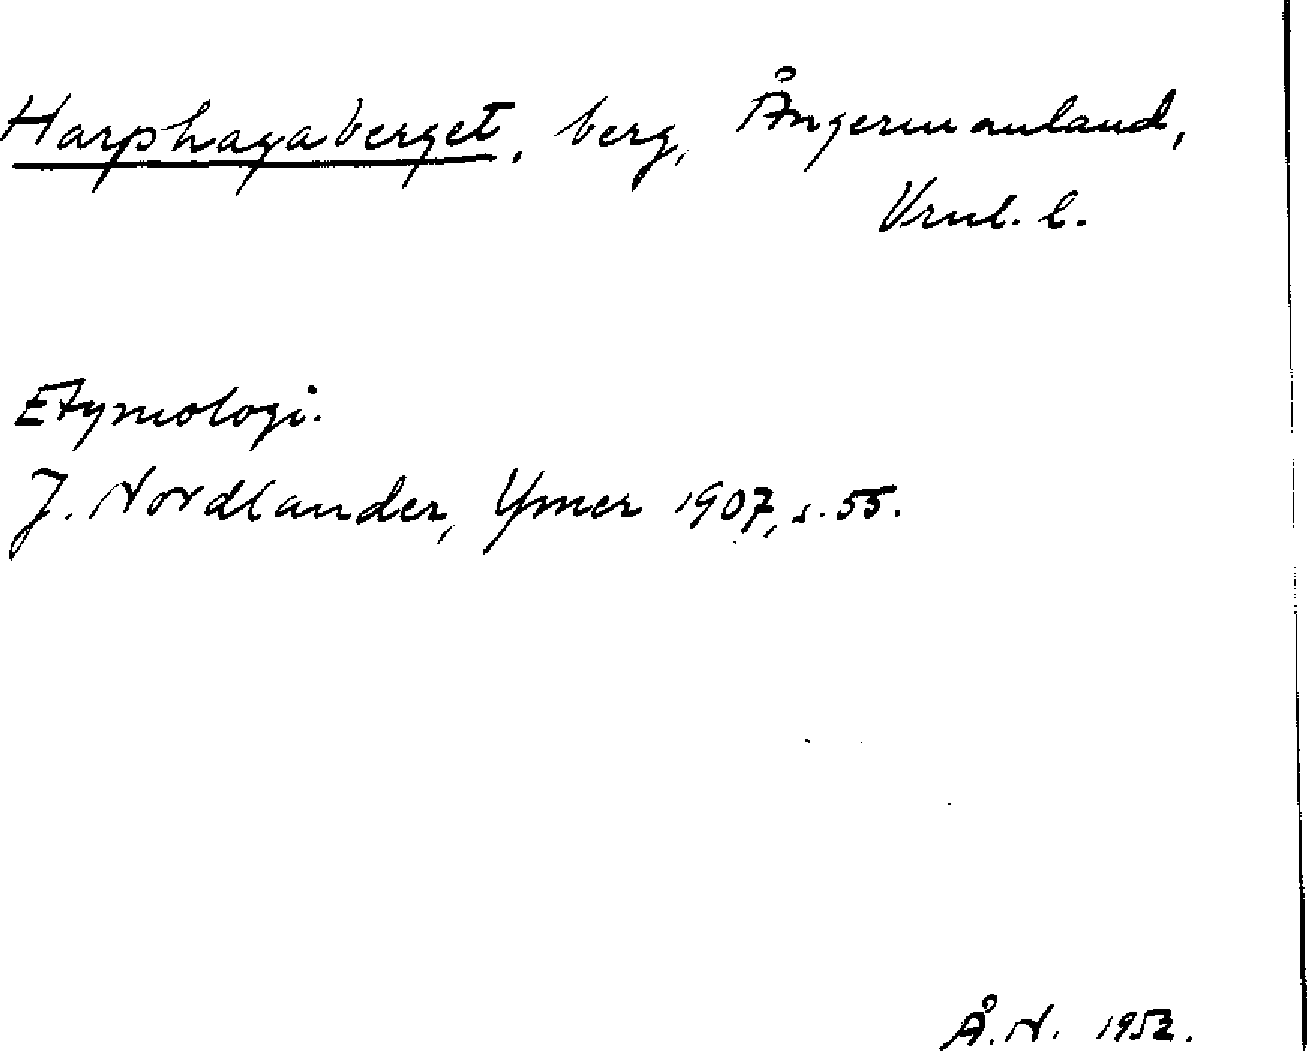 Harphagaberget, berg, Ångermanland,
Vrml. l.
Etymologi.
J. Nordlander, Ymer 1907, s. 55.
Å. N. 1952.